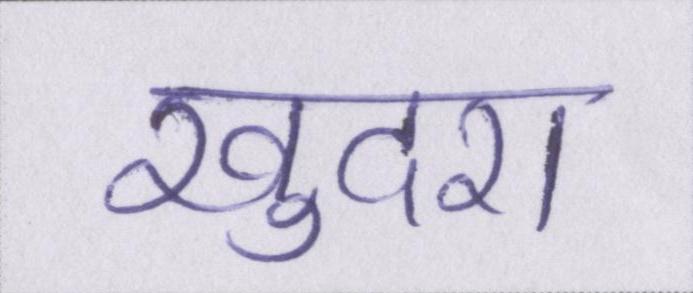 खुदरा